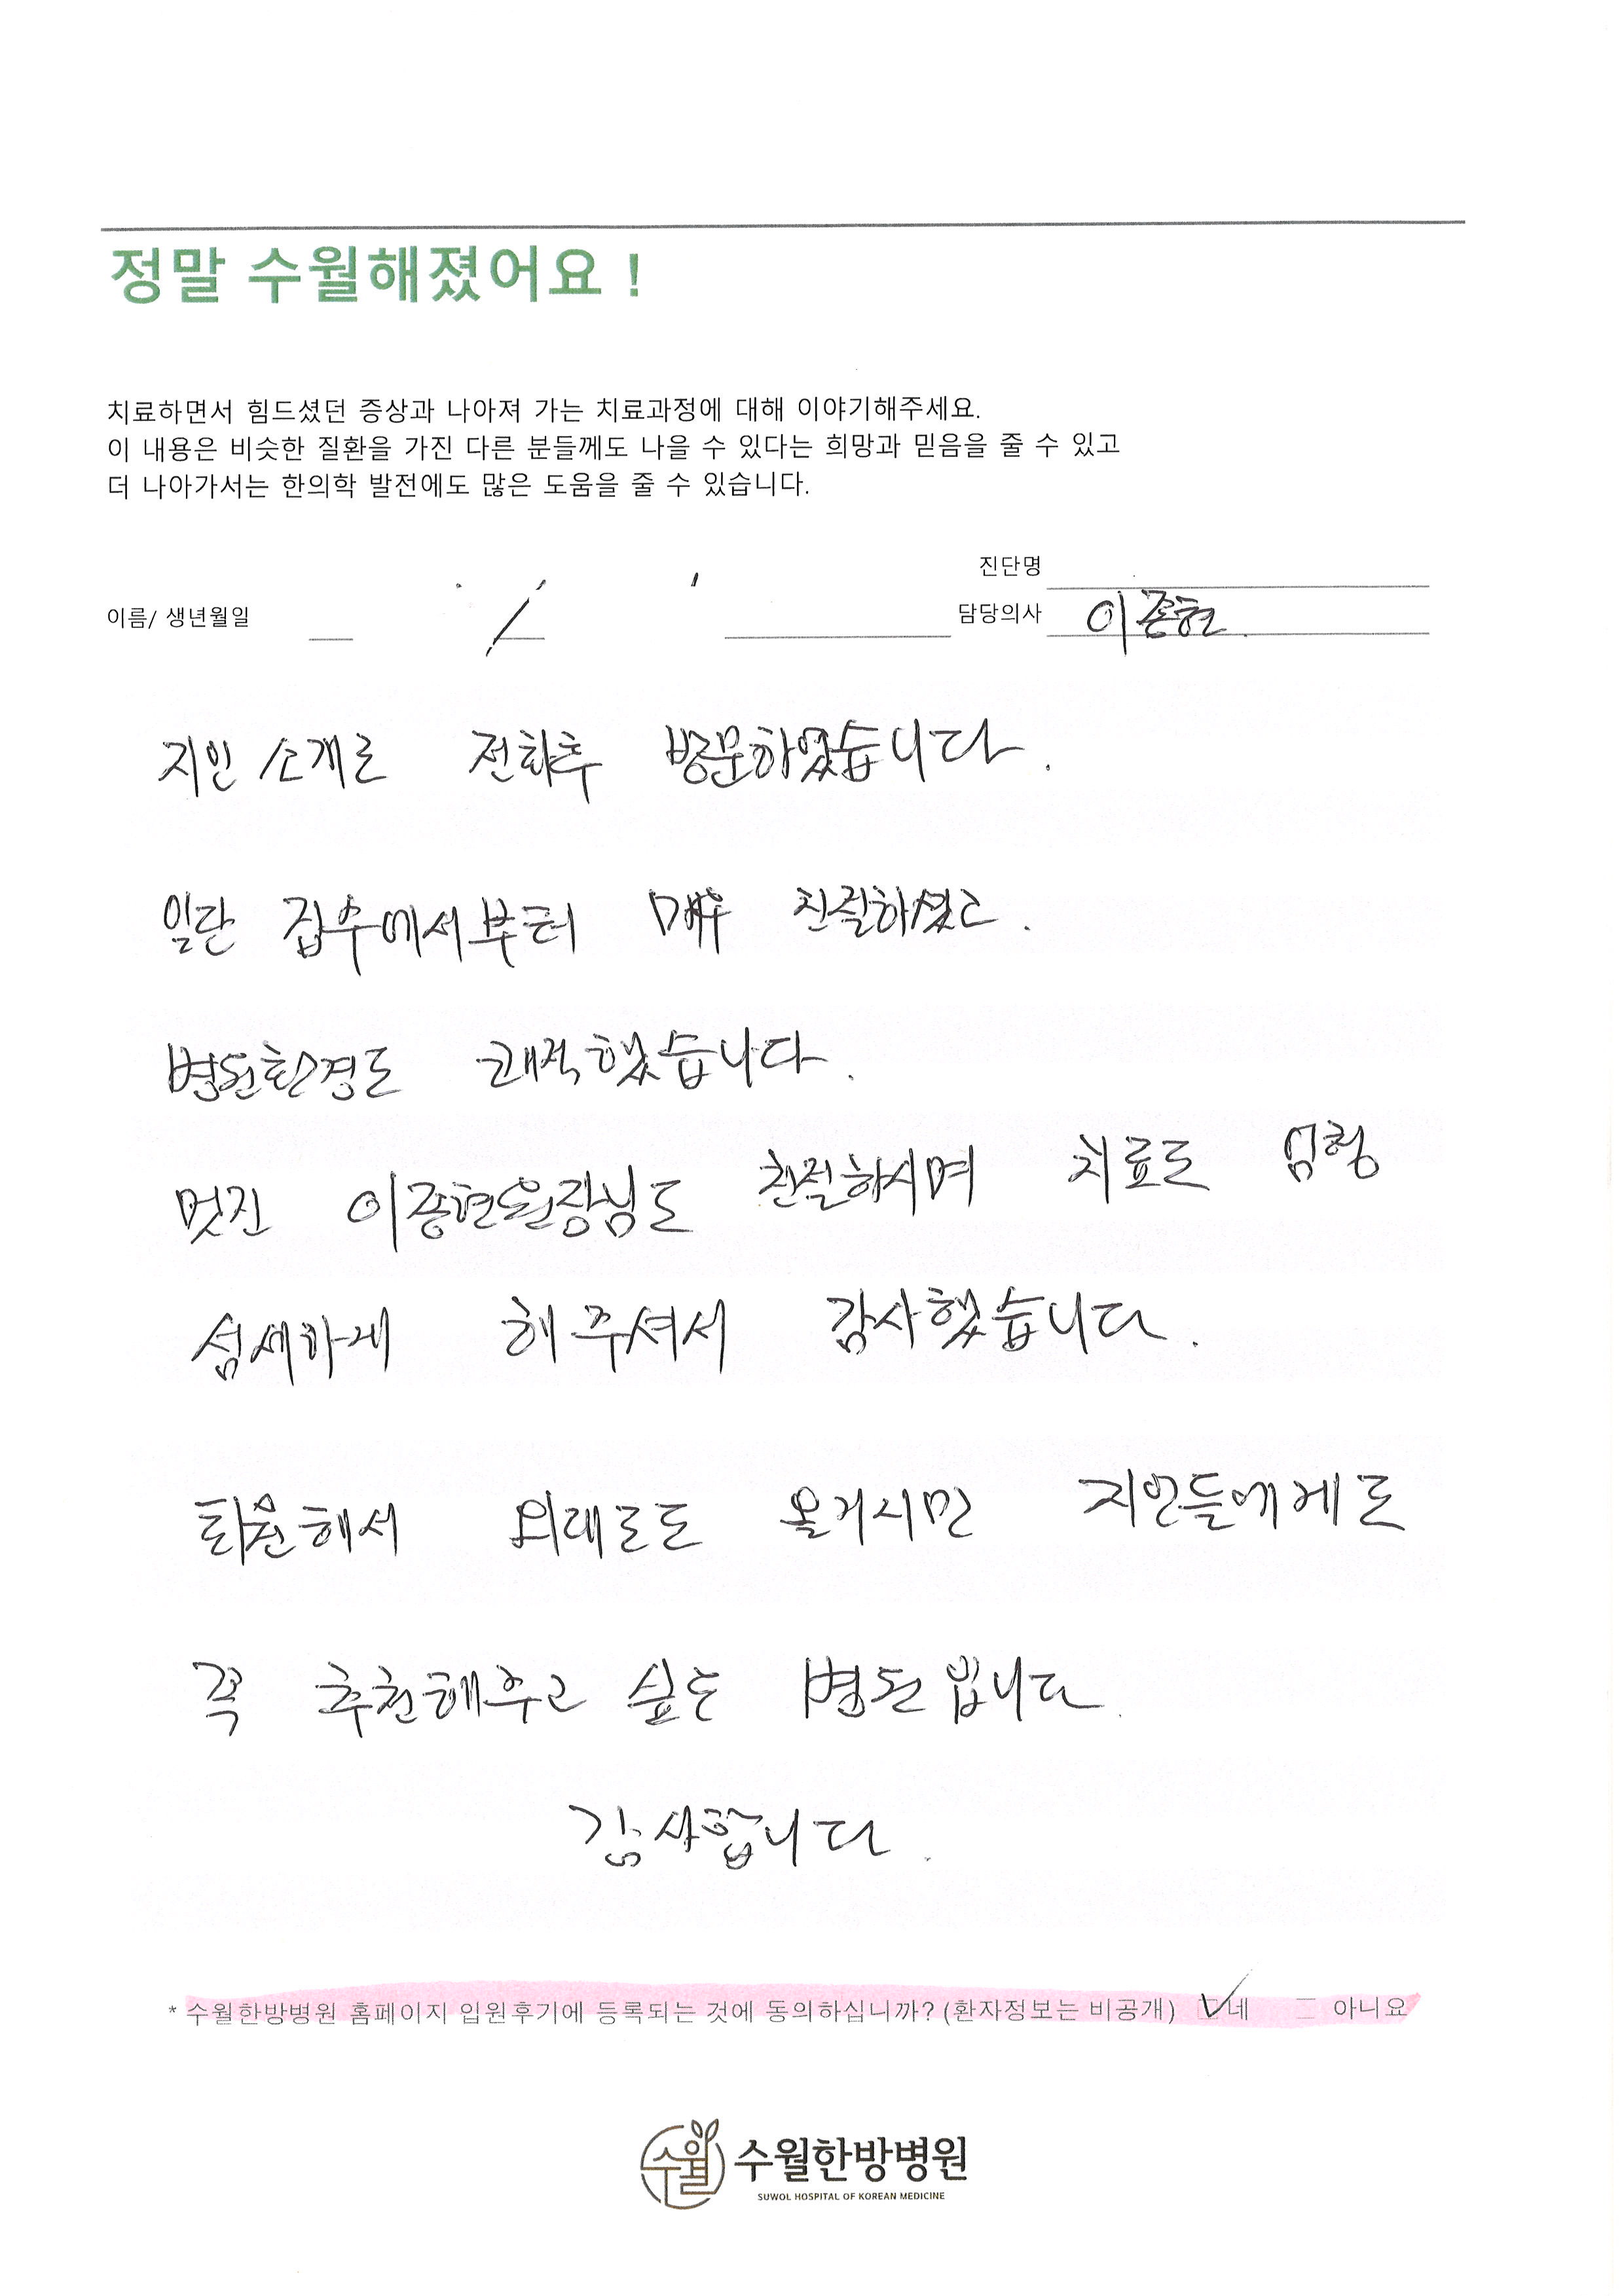 정말 수월해졌어요 !
치료하면서 힘드셨던 증상과 나아져 가는 치료과정에 대해 이야기해주세요.
이 내용은 비슷한 질환을 가진 다른 분들께도 나을 수 있다는 희망과 믿음을 줄 수 있고
더 나아가서는 한의학 발전에도 많은 도움을 줄 수 있습니다.
진단명
이름/ 생년월일 / 담당의사 이종현.
지인 소개로 전화후 방문하였습니다.
일단 접수에서부터 매우 친절하셨고.
병원환경도 쾌적했습니다.
멋진 이종현원장님도 친절하시며 치료도
섬세하게 해주셔서 감사했습니다.
퇴원해서 외래로도 올거시만 지인들에게도
꼭 추천해주고 싶은 병원입니다.
감사합니다.
* 수월한방병원 홈페이지 입원후기에 등록되는 것에 동의하십니까? (환자정보는 비공개) ☑네 □ 아니요
수월 수월한방병원
SUWOL HOSPITAL OF KOREAN MEDICINE